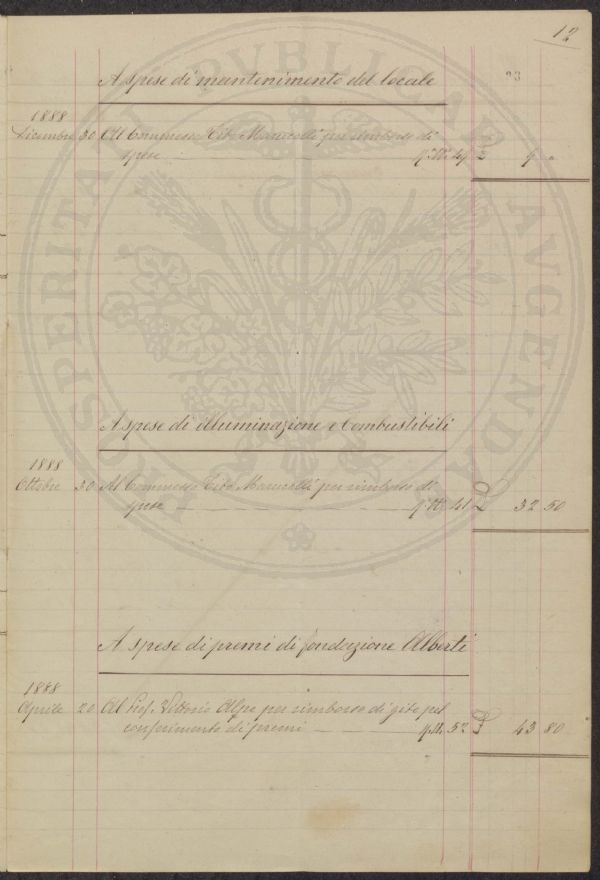 12
23
A spese di mantenimento del locale
1888
Dicembre 30 Al Commesso Tito Manicelli per rimborso di
spese 49 L 9 "
A spese di illuminazione e Combustibili
1888
Ottobre 30 Al Commesso Tito Manicelli per rimborso di
spese 41 L 32 50
A spese di premi di fondazione Alberti
1888
Aprile 20 Al Prof. Vittorio Alpe per rimborso di gite pel
conferimento di premi 52 L 43 80
PROSPERITATI PVBLICAE AVGENDAE